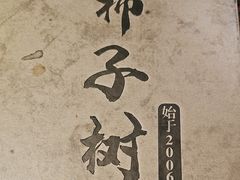 柿子树
始于2006